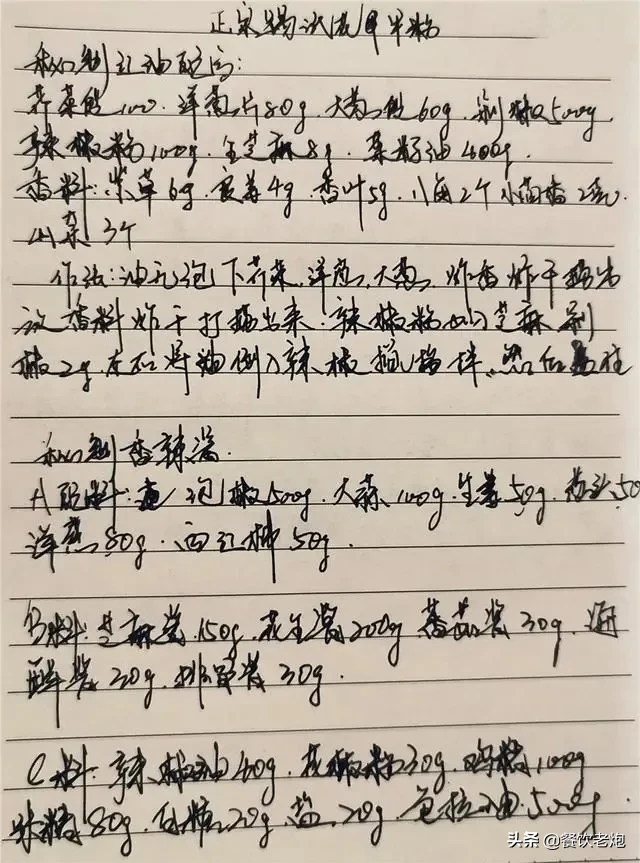 正宗锡沭花甲米粉
私人制红油配方:
芹菜段100. 洋葱片80g. 大葱段60g. 剁椒500g.
辣椒粉100g. 生芝麻8g. 菜籽油400g.
香料: 紫草6g. 良姜4g. 香叶5g. 八角2个 小茴香2克.
山奈 3个
作法: 油 泡 下芹菜. 洋葱. 大葱. 炸香炸干捞出
放香料炸干打捞出来. 辣椒粉 芝麻 剁
椒2g. 倒入辣椒 搅拌. 然后 住
香辣酱.
A配料: 泡椒500g. 大蒜100g. 生姜50g. 50
洋葱80g. 西红柿50g.
B料: 芝麻酱150g. 花生酱200g 蕃茄酱30g. 海
鲜酱30g. 排骨酱30g.
C料: 辣椒油40g. 花椒粉30g. 鸡精100g
味精80g. 白糖20g. 盐20g. 色拉油500g.
头条 @餐饮老炮